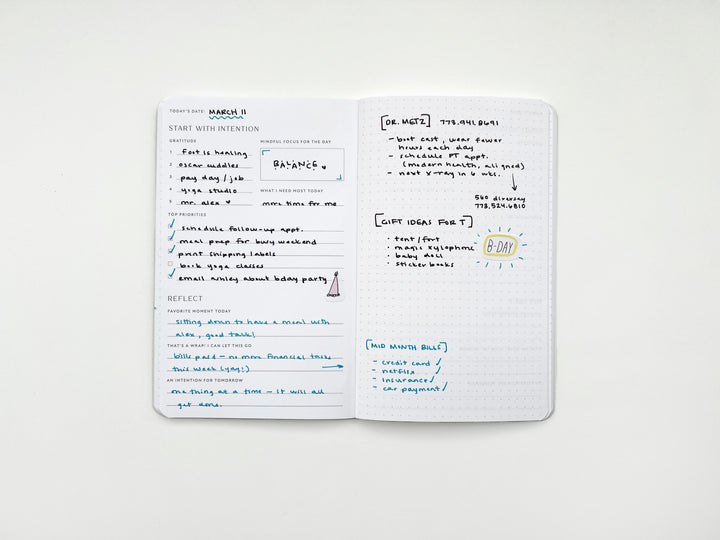 TODAY'S DATE: MARCH 11
START WITH INTENTION
GRATITUDE
1 foot is healing
2 oscar cuddles
3 pay day / job
4 yoga studio
5 mr. alex
MINDFUL FOCUS FOR THE DAY
BALANCE
WHAT I NEED MOST TODAY
more time for me
TOP PRIORITIES
schedule follow-up appt.
meal prep for busy weekend
print shipping labels
book yoga classes
email ashley about bday party
REFLECT
FAVORITE MOMENT TODAY
sitting down to have a meal with
alex, good talk!
THAT'S A WRAP! I CAN LET THIS GO
bills paid – no more financial talks
this week (yay!)
AN INTENTION FOR TOMORROW
one thing at a time – it will all
get done.
[DR. METZ] 773.941.8691
- boot cast, wear fewer
hours each day
- schedule PT appt.
(modern health, aligned)
- next x-ray in 6 wks.
560 diversey
773.524.6810
[GIFT IDEAS FOR T]
· tent/fort
· magic xylophone
· baby doll
· sticker books
B-DAY
[MID MONTH BILLS]
- credit card ✓
- netflix ✓
- insurance ✓
- car payment ✓